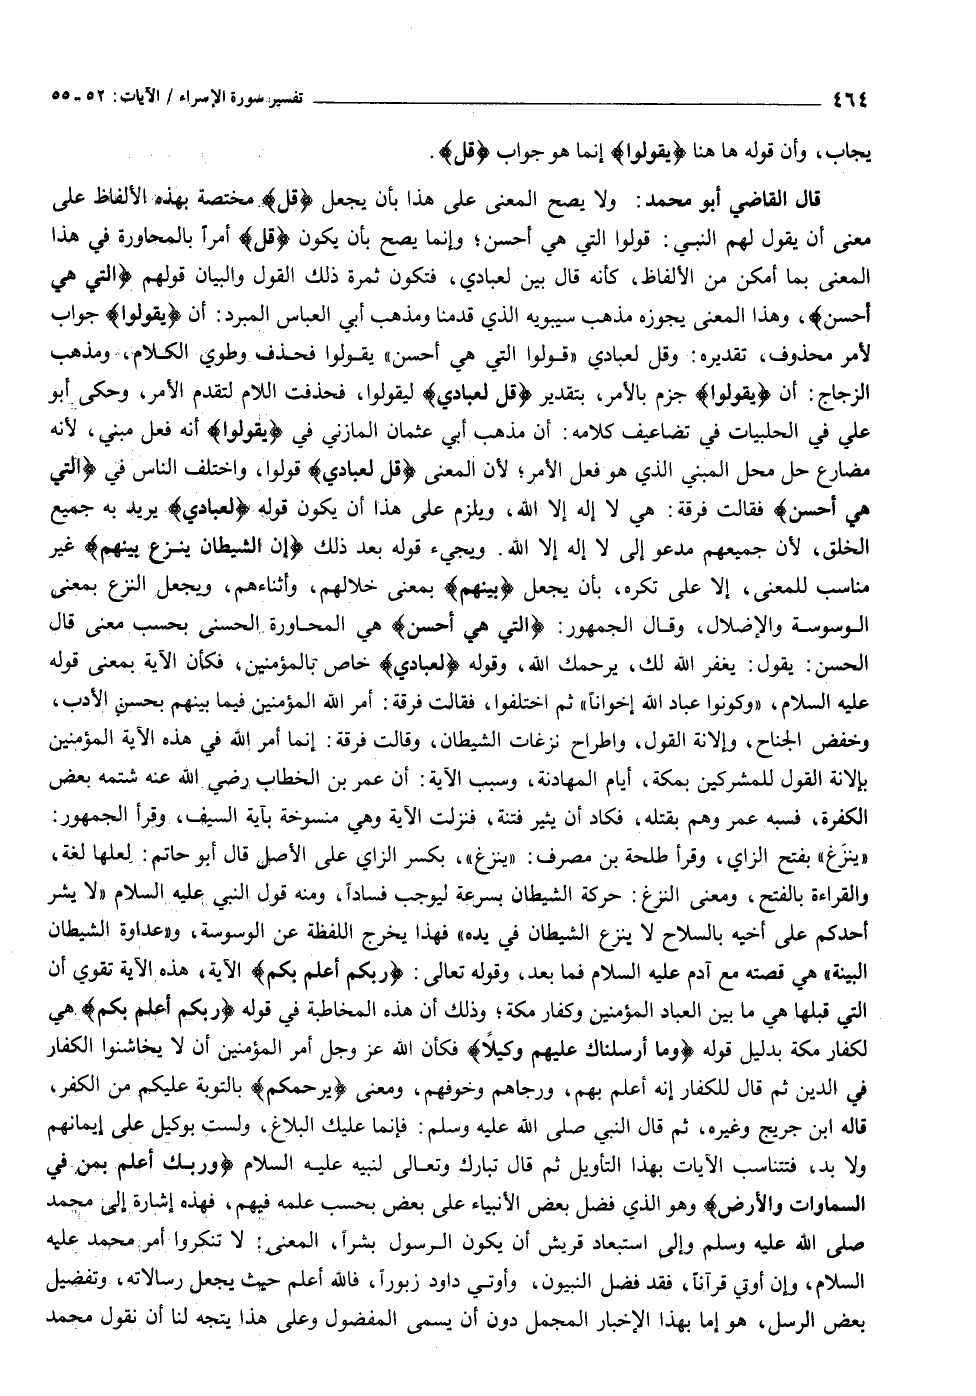 ٤٦٤ ــــــــــــــــــــ تفسير سورة الإسراء / الآيات: ٥٢ - ٥٥
يجاب، وأن قوله ها هنا ﴿يقولوا﴾ إنما هو جواب ﴿قل﴾.
قال القاضي أبو محمد: ولا يصح المعنى على هذا بأن يجعل ﴿قل﴾ مختصة بهذه الألفاظ على
معنى أن يقول لهم النبي: قولوا التي هي أحسن؛ وإنما يصح بأن يكون ﴿قل﴾ أمراً بالمحاورة في هذا
المعنى بما أمكن من الألفاظ، كأنه قال بين لعبادي، فتكون ثمرة ذلك القول والبيان قولهم ﴿التي هي
أحسن﴾، وهذا المعنى يجوزه مذهب سيبويه الذي قدمنا ومذهب أبي العباس المبرد: أن ﴿يقولوا﴾ جواب
لأمر محذوف، تقديره: وقل لعبادي «قولوا التي هي أحسن» يقولوا فحذف وطوي الكلام، ومذهب
الزجاج: أن ﴿يقولوا﴾ جزم بالأمر، بتقدير ﴿قل لعبادي﴾ ليقولوا، فحذفت اللام لتقدم الأمر، وحكى أبو
علي في الحلبيات في تضاعيف كلامه: أن مذهب أبي عثمان المازني في ﴿يقولوا﴾ أنه فعل مبني، لأنه
مضارع حل محل المبني الذي هو فعل الأمر؛ لأن المعنى ﴿قل لعبادي﴾ قولوا، واختلف الناس في ﴿التي
هي أحسن﴾ فقالت فرقة: هي لا إله إلا الله، ويلزم على هذا أن يكون قوله ﴿لعبادي﴾ يريد به جميع
الخلق، لأن جميعهم مدعو إلى لا إله إلا الله. ويجيء قوله بعد ذلك ﴿إن الشيطان ينزع بينهم﴾ غير
مناسب للمعنى، إلا على تكره، بأن يجعل ﴿بينهم﴾ بمعنى خلالهم، وأثناءهم، ويجعل النزع بمعنى
الوسوسة والإضلال، وقال الجمهور: ﴿التي هي أحسن﴾ هي المحاورة الحسنى بحسب معنى قال
الحسن: يقول: يغفر الله لك، يرحمك الله، وقوله ﴿لعبادي﴾ خاص بالمؤمنين، فكأن الآية بمعنى قوله
عليه السلام، «وكونوا عباد الله إخواناً» ثم اختلفوا، فقالت فرقة: أمر الله المؤمنين فيما بينهم بحسن الأدب،
وخفض الجناح، وإلانة القول، واطراح نزغات الشيطان، وقالت فرقة: إنما أمر الله في هذه الآية المؤمنين
بإلانة القول للمشركين بمكة، أيام المهادنة، وسبب الآية: أن عمر بن الخطاب رضي الله عنه شتمه بعض
الكفرة، فسبه عمر وهم بقتله، فكاد أن يثير فتنة، فنزلت الآية وهي منسوخة بآية السيف، وقرأ الجمهور:
«ينزَغ» بفتح الزاي، وقرأ طلحة بن مصرف: «ينزغ»، بكسر الزاي على الأصل قال أبو حاتم: لعلها لغة،
والقراءة بالفتح، ومعنى النزغ: حركة الشيطان بسرعة ليوجب فساداً، ومنه قول النبي عليه السلام «لا يشر
أحدكم على أخيه بالسلاح لا ينزع الشيطان في يده» فهذا يخرج اللفظة عن الوسوسة، و«عداوة الشيطان
البينة» هي قصته مع آدم عليه السلام فما بعد، وقوله تعالى: ﴿ربكم أعلم بكم﴾ الآية، هذه الآية تقوي أن
التي قبلها هي ما بين العباد المؤمنين وكفار مكة؛ وذلك أن هذه المخاطبة في قوله ﴿ربكم أعلم بكم﴾ هي
لكفار مكة بدليل قوله ﴿وما أرسلناك عليهم وكيلًا﴾ فكأن الله عز وجل أمر المؤمنين أن لا يخاشنوا الكفار
في الدين ثم قال للكفار إنه أعلم بهم، ورجاهم وخوفهم، ومعنى ﴿يرحمكم﴾ بالتوبة عليكم من الكفر،
قاله ابن جريج وغيره، ثم قال النبي صلى الله عليه وسلم: فإنما عليك البلاغ، ولست بوكيل على إيمانهم
ولا بد، فتتناسب الآيات بهذا التأويل ثم قال تبارك وتعالى لنبيه عليه السلام ﴿وربك أعلم بمن في
السماوات والأرض﴾ وهو الذي فضل بعض الأنبياء على بعض بحسب علمه فيهم، فهذه إشارة إلى محمد
صلى الله عليه وسلم وإلى استبعاد قريش أن يكون الرسول بشراً، المعنى: لا تنكروا أمر محمد عليه
السلام، وإن أوتي قرآناً، فقد فضل النبيون، وأوتي داود زبوراً، فالله أعلم حيث يجعل رسالاته، وتفضيل
بعض الرسل، هو إما بهذا الإخبار المجمل دون أن يسمى المفضول وعلى هذا يتجه لنا أن نقول محمد